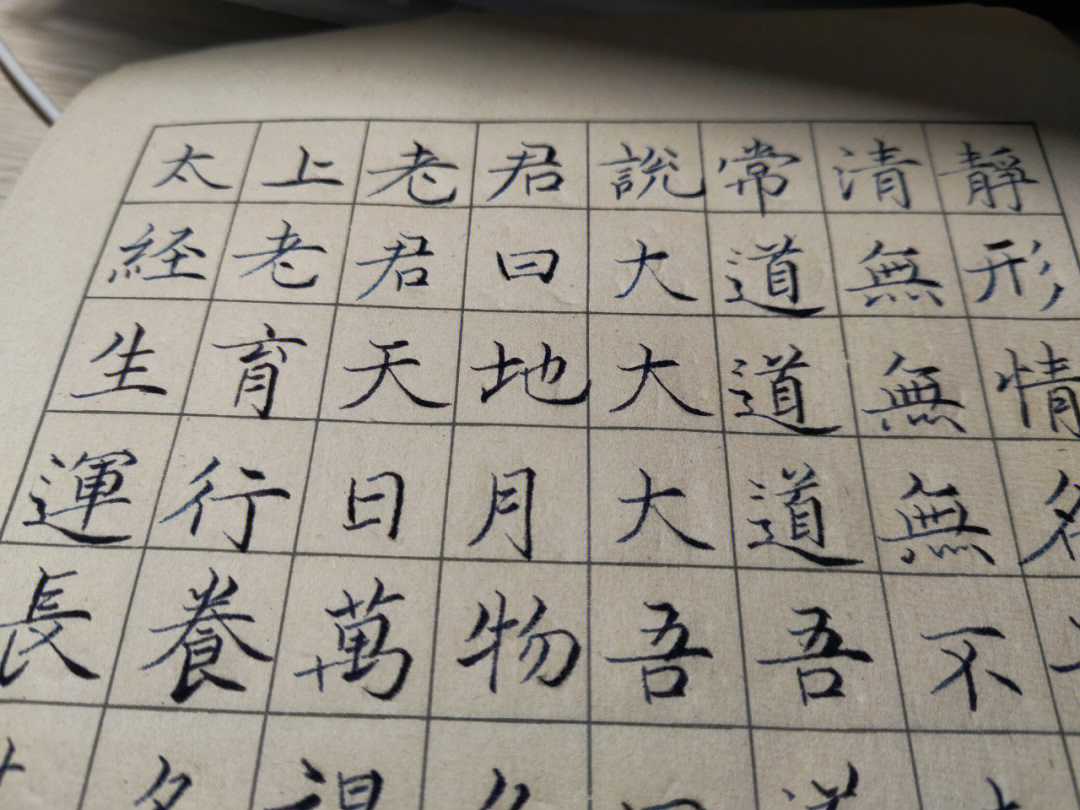 太上老君說常清靜
経老君曰大道無形
生育天地大道無情
運行日月大道無名
長養萬物吾吾不